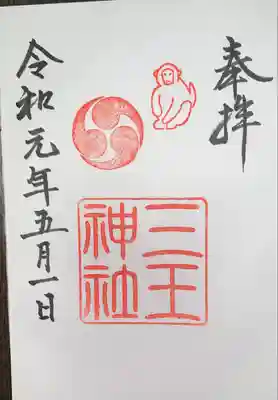 奉拝
三王
神社
令和元年五月一日